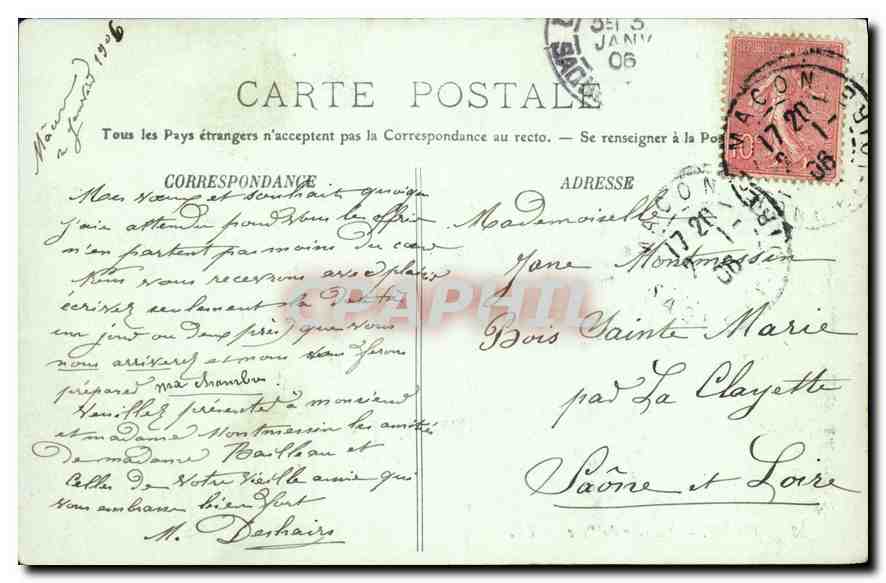 Mâcon
2 Janvier 1906
CARTE POSTALE
Tous les Pays étrangers n'acceptent pas la Correspondance au recto. — Se renseigner à la Pos
CORRESPONDANCE
Mes vœux et souhait quoique
j'aie attendu pour vous les offrir
n'en partent pas moins du cœur
Nous vous recevrons avec plaisir
écrivez seulement la
un jour ou deux près que vous
nous arriverez et nous vous ferons
préparer ma chambre.
Veuillez présenter à monsieur
et madame Montmessin les amitiés
de madame Bailleau et
celles de votre vieille amie qui
vous embrasse bien fort
M. Deshairs
ADRESSE
Mademoiselle
Jane Montmessin
Bois Sainte Marie
par La Clayette
Saône et Loire
JANV
06
MACON
17 20
2 - 1
06
MACON
17 20
2 - 1
06
10
CPAPHIL